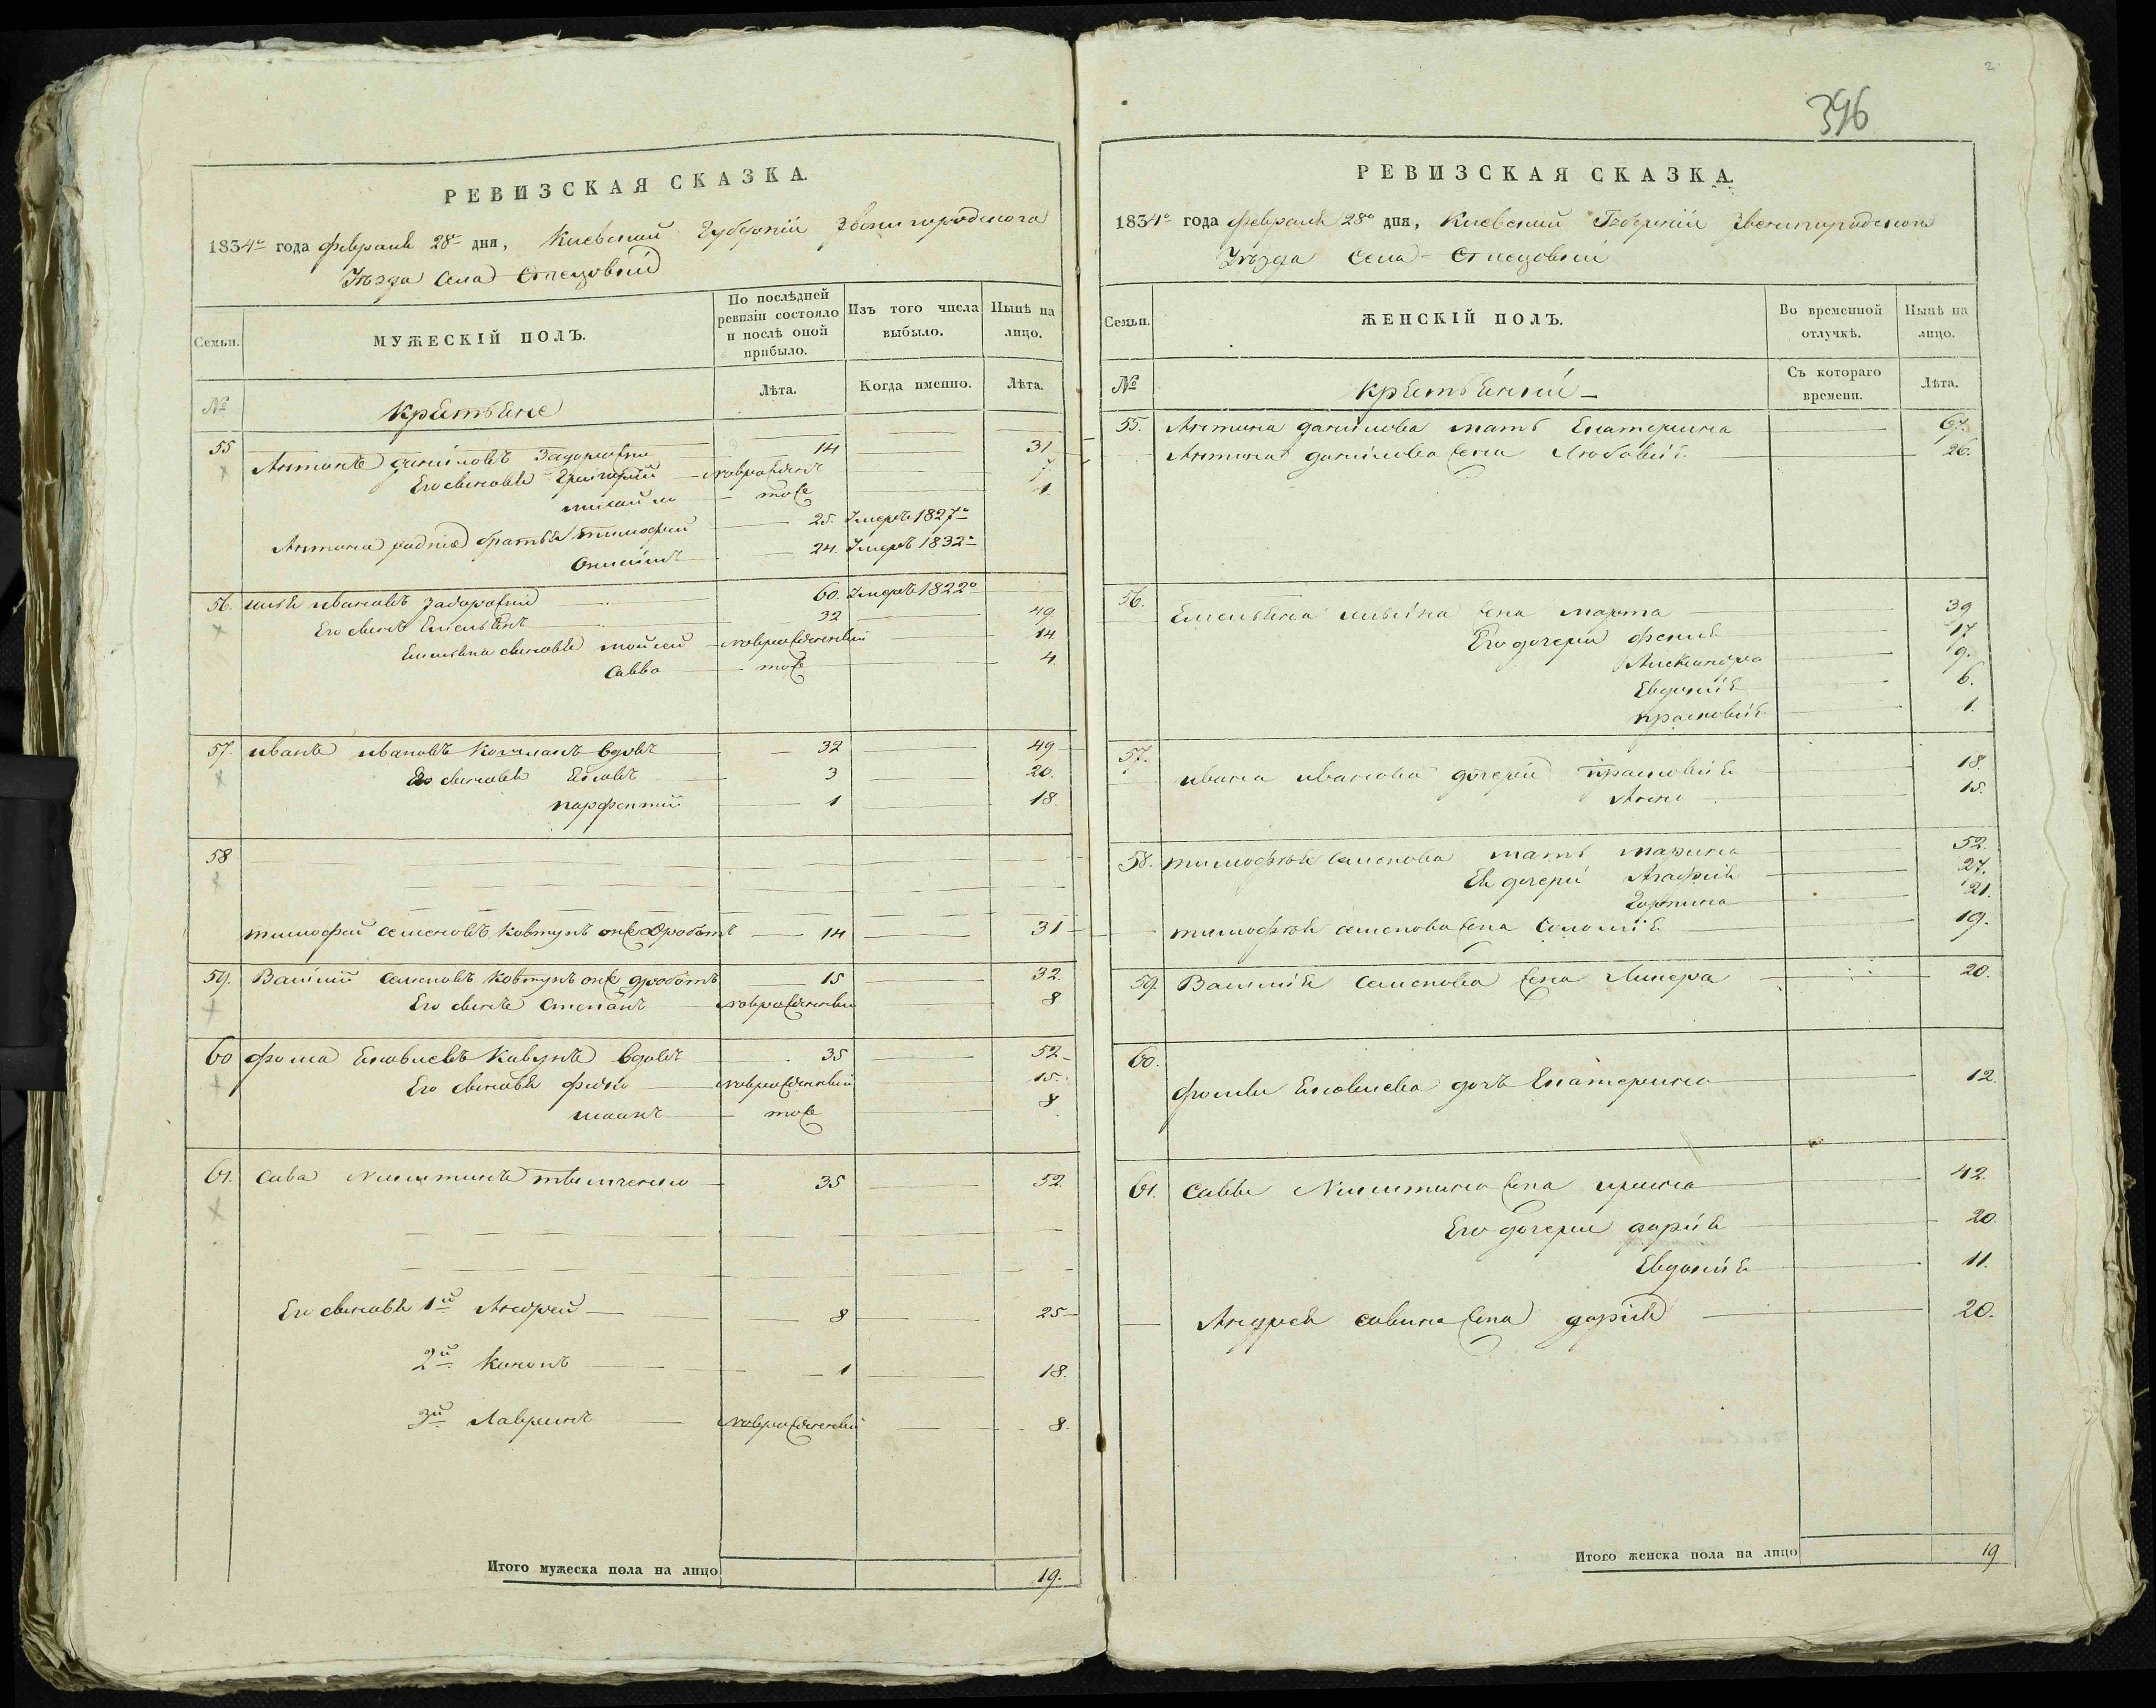 РЕВИЗСКАЯ СКАЗКА.
1834го года февраля 28го дня, Киевской Губернии Звенигородского
Уѣзда Села Стецовки
Семьи.
МУЖЕСКІЙ ПОЛЪ.
По послѣдней ревизіи состояло и послѣ оной прибыло.
Изъ того числа выбыло.
Нынѣ на лицо.
№
Крестьяне
Лѣта.
Когда именно.
Лѣта.
55 Антонъ Даниловъ Задорожны 14 31
Его сыновья Григорій новорожденъ 7
Михайло тоже 1
Антона родніе братья Тимофей 25. Умеръ 1827го
24. Умеръ 1832го
56. Илья Ивановъ Задорожній 60. Умеръ 1822го
Его сынъ Емельянъ 32 49
Емельяна сыновья Мойсей новорожденный 14
Савва тоже 4.
57. Иванъ Ивановъ вдовъ 32 49
Его сыновья Яковъ 3 20.
Парфентій 1 18.
58
Тимофей Семеновъ Ковтунъ онже Дроботъ 14 31
59. Василий Семеновъ Ковтунъ онже Дроботъ 15 32.
Его сынъ Степанъ новорожденный 8
60 Фома Яковлевъ Кавунъ вдовъ 35 52
Его сыновья новорожденный 15.
тоже 8
61. Сава Никитинъ Тымченко 35 52.
Его сыновья 1й Андрей 8 25
2й Кононъ 1 18.
3й Лавринъ новорожденный 8.
Итого мужеска пола на лицо 19.
2
396
РЕВИЗСКАЯ СКАЗКА.
1834го года февраля 28го дня, Киевской Губерніи Звенигородского
Уѣзда Села Стецовки
Семьи.
ЖЕНСКІЙ ПОЛЪ.
Во временной отлучкѣ.
Нынѣ на лицо.
№
Крестьянки
Съ котораго времени.
Лѣта.
55. Антона Данилова мать Екатерина 67.
Антона Данилова жена Любовія 26.
56. Емельяна Ильина жена Марта 39
Его дочери Фенія 17
Александра 9.
Евдокія 6.
Прасковія 1.
57. Ивана Иванова дочери Прасковія 18.
Анна 15.
58. Тимофѣя Семенова мать Марина 52.
Ея дочери Агафія 27.
Горпина 21.
Тимофѣя Семенова жена Соломія 19.
59. Василія Семенова жена 20.
60. Фомы Яковлева дочь Екатерина 12.
61. Саввы Никитина жена Ирина 42.
Его дочери Дарія 20
Евдокія 11.
Андрея Савина жена Дарія 20.
Итого женска пола на лицо 19